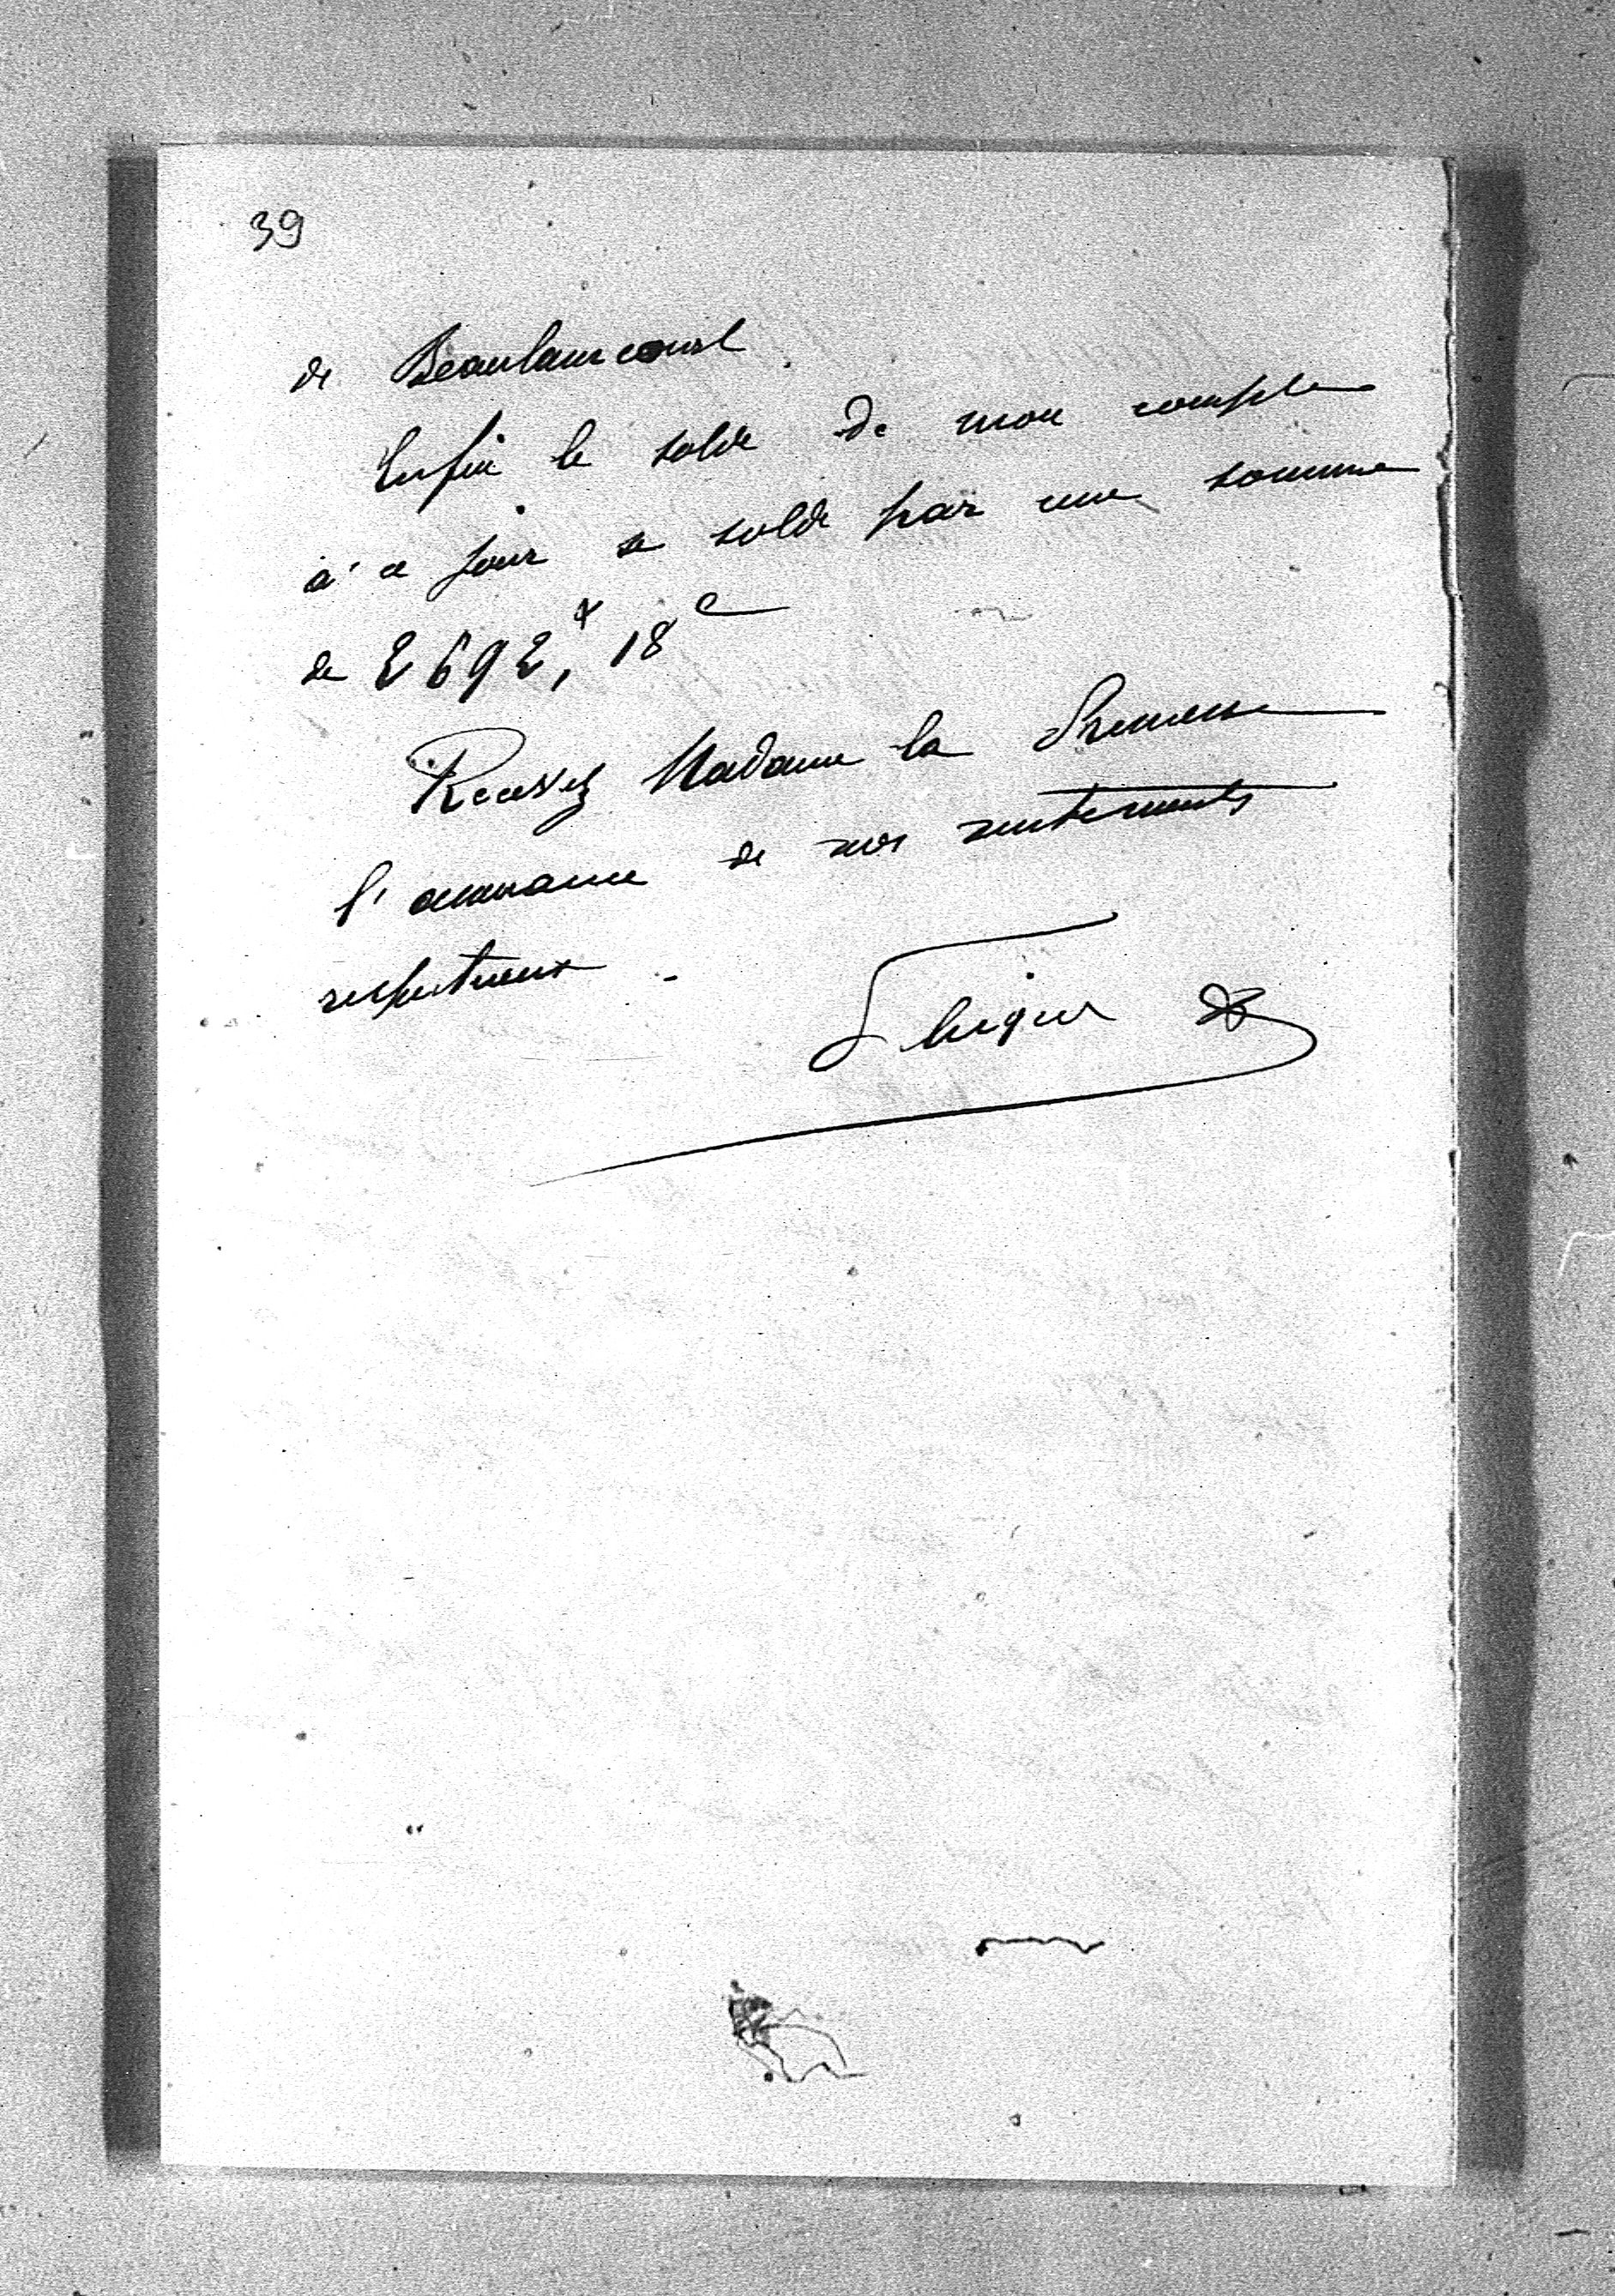 39
de Beaulaincourt.
Enfin le solde de mon compte
à ce jour se solde par une somme
de 2692,f 18c
Recevez Madame la Princesse
l'assurance de mes sentiments
respectueux.